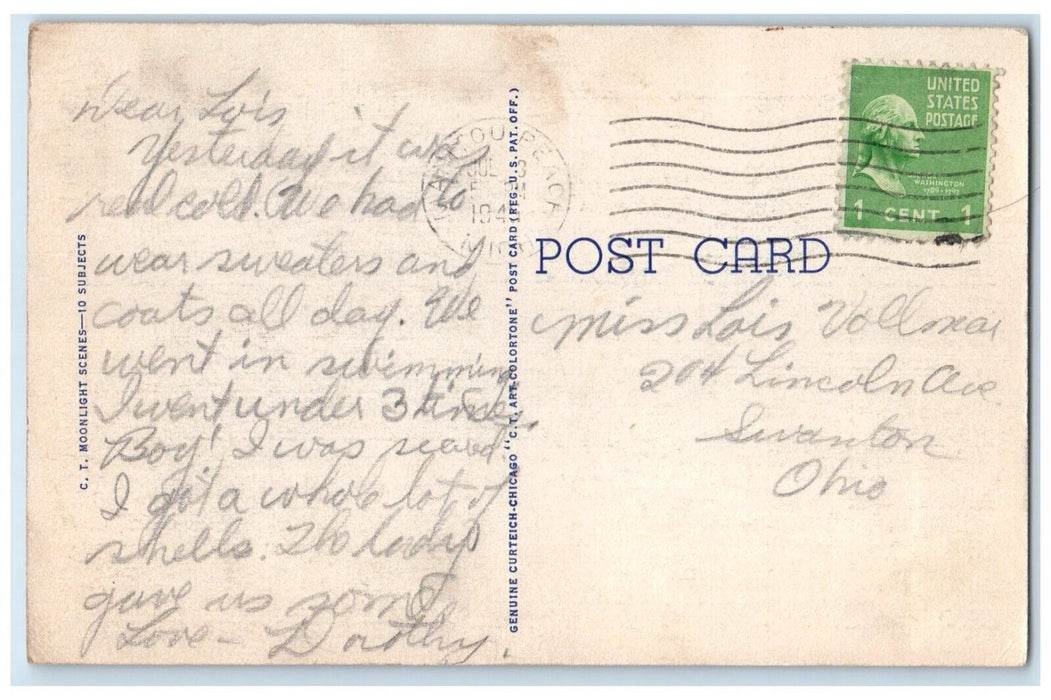 Dear Lois
Yesterday it was
real cold. We had to
wear sweaters and
coats all day. We
went in swimming
I went under 3 times.
Boy! I was scared
I got a whole lot of
shells. The lady
gave us some
Love - Dorothy.
C. T. MOONLIGHT SCENES—10 SUBJECTS
GENUINE CURTEICH-CHICAGO "C. T. ART-COLORTONE" POST CARD (REG. U. S. PAT. OFF.)
JUL
194
MICH
UNITED
STATES
POSTAGE
WASHINGTON
1789-1797
1 CENT 1
POST CARD
Miss Lois Vollmar
204 Lincoln Ave.
Swanton
Ohio